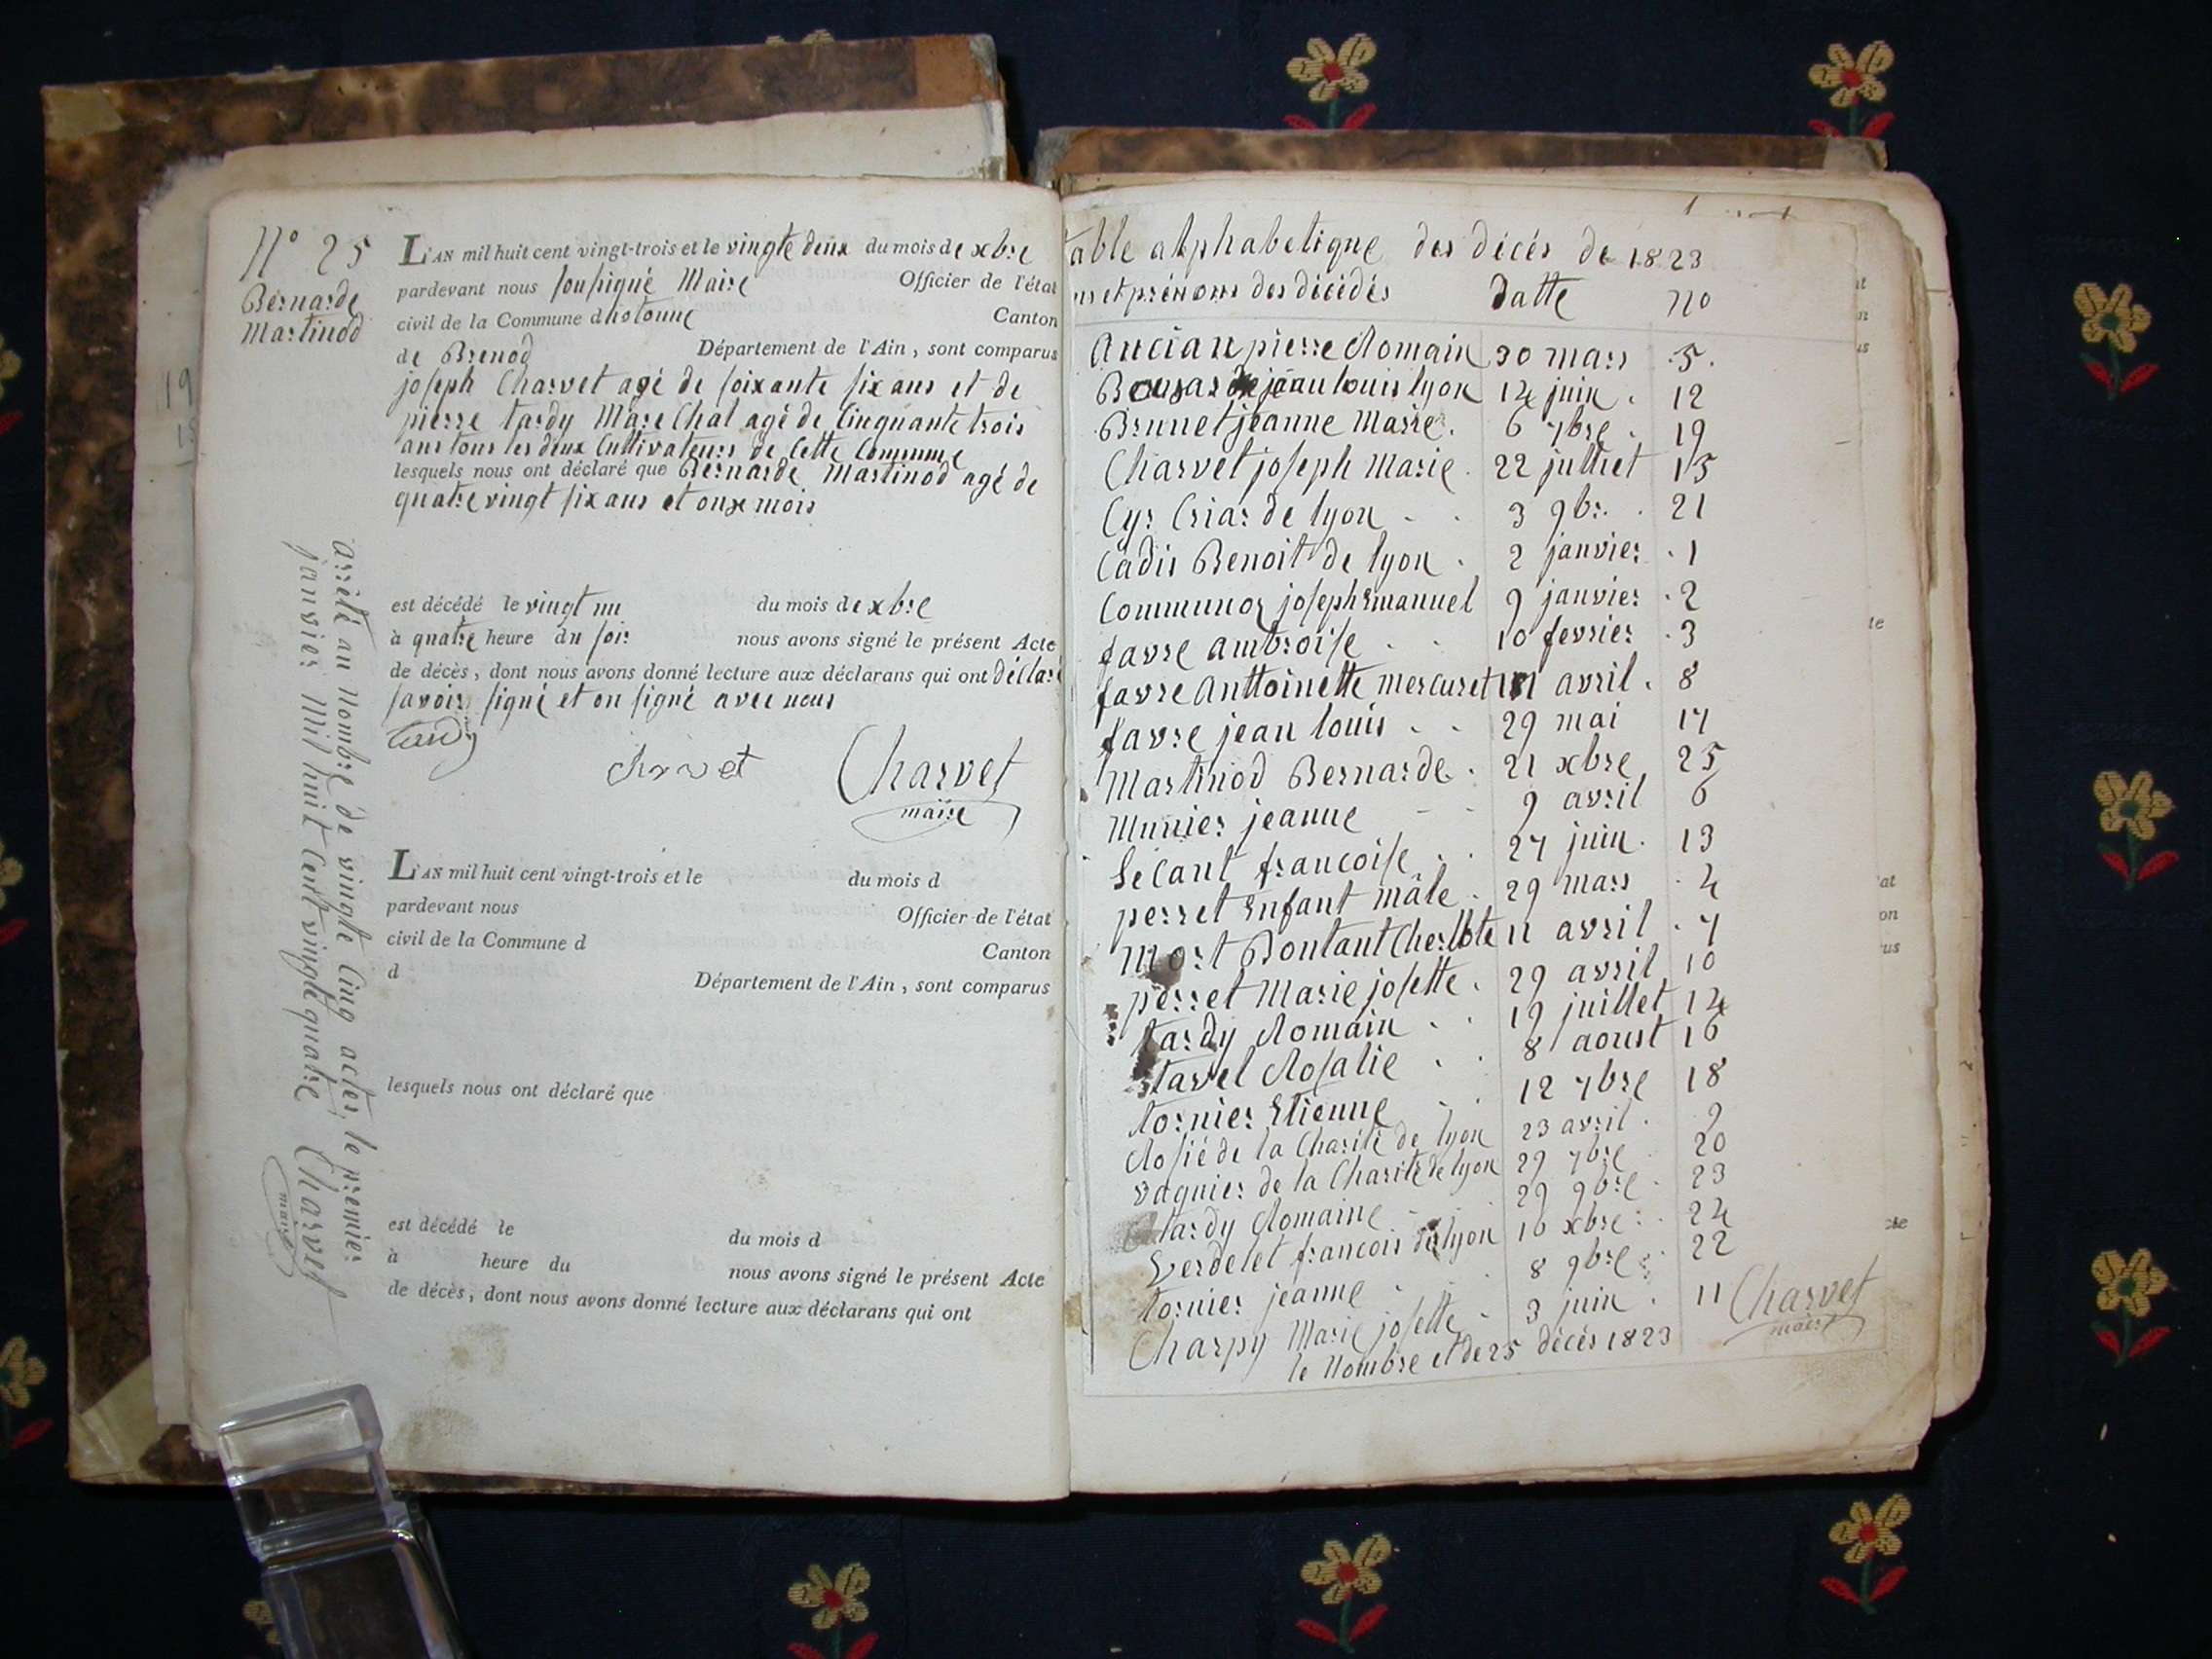 N° 25
Bernarde
Martinod
L'AN mil huit cent vingt-trois et le vingte deux du mois de xbre
pardevant nous soussigné Maire Officier de l'état
civil de la Commune dhotonne Canton
de Brenod Département de l'Ain, sont comparus
joseph Charvet agé de soixante six ans et de
pierre tardy Mare Chal agé de Cinquante trois
ans tous les deux Cultivateurs de Cette Commune
lesquels nous ont déclaré que Bernarde Martinod agé de
quatre vingt six ans et onze mois
est décédé le vingt un du mois de xbre
à quatre heure du soir nous avons signé le présent Acte
de décès, dont nous avons donné lecture aux déclarans qui ont déclaré
savoir signé et on signé avec nous
tardy Charvet Charvet
maire
arrêté au Nombre de vingte Cinq actes, le premier
janvier Mil huit Cent vingte quatre Charvet
maire
L'AN mil huit cent vingt-trois et le du mois d
pardevant nous Officier de l'état
civil de la Commune d Canton
d Département de l'Ain, sont comparus
lesquels nous ont déclaré que
est décédé le du mois d
à heure du nous avons signé le présent Acte
de décès, dont nous avons donné lecture aux déclarans qui ont
table alphabetique des décés de 1823
ms et prénoms des décédés datte no
Ancian pierre Romain 30 mars 5
jean louis lyon 14 juin 12
Brunet jeanne Marie 6 7bre 19
Charvet joseph Marie 22 julliet 15
Cyr Criar de lyon 3 9br 21
Cadis Benoit de lyon 2 janvier 1
Communoz joseph Emanuel 9 janvier 2
favre ambroise 10 fevrier 3
favre anttoinette mercuret avril 8
favre jean louis 29 mai 17
Martinod Bernarde 21 xbre 25
Munier jeanne 9 avril 6
Secant francoise 27 juin 13
perret Enfant mâle 29 mars 4
mort Bontant Cherlote 11 avril 7
perret Marie josette 29 avril 10
tardy Romain 19 juillet 14
tavel Rosalie 8 aoust 16
tornier Etienne 12 7bre 18
Rosié de la Charité de lyon 23 avril 9
vaguier de la Charité de lyon 29 7bre 20
tardy Romaine 29 9bre 23
Verdelet francois de lyon 16 xbre 24
tornier jeanne 8 9bre 22
Charpy Marie josette 3 juin 11 Charvet
maire
le Nombre et de 25 décés 1823